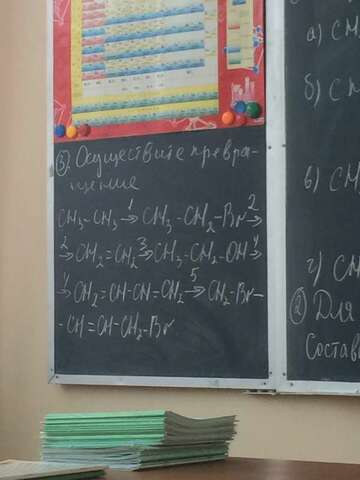 ③ Осуществите превра-
щение
CH₃-CH₃ →¹ CH₃-CH₂-Br →²
→² CH₂=CH₂ →³ CH₃-CH₂-OH →⁴
→⁴ CH₂=CH-CH-CH₂ →⁵ CH₂-Br-
-CH=CH-CH₂-Br
а) CH
б) CH
в) CH
г) CH
② Для
Состав